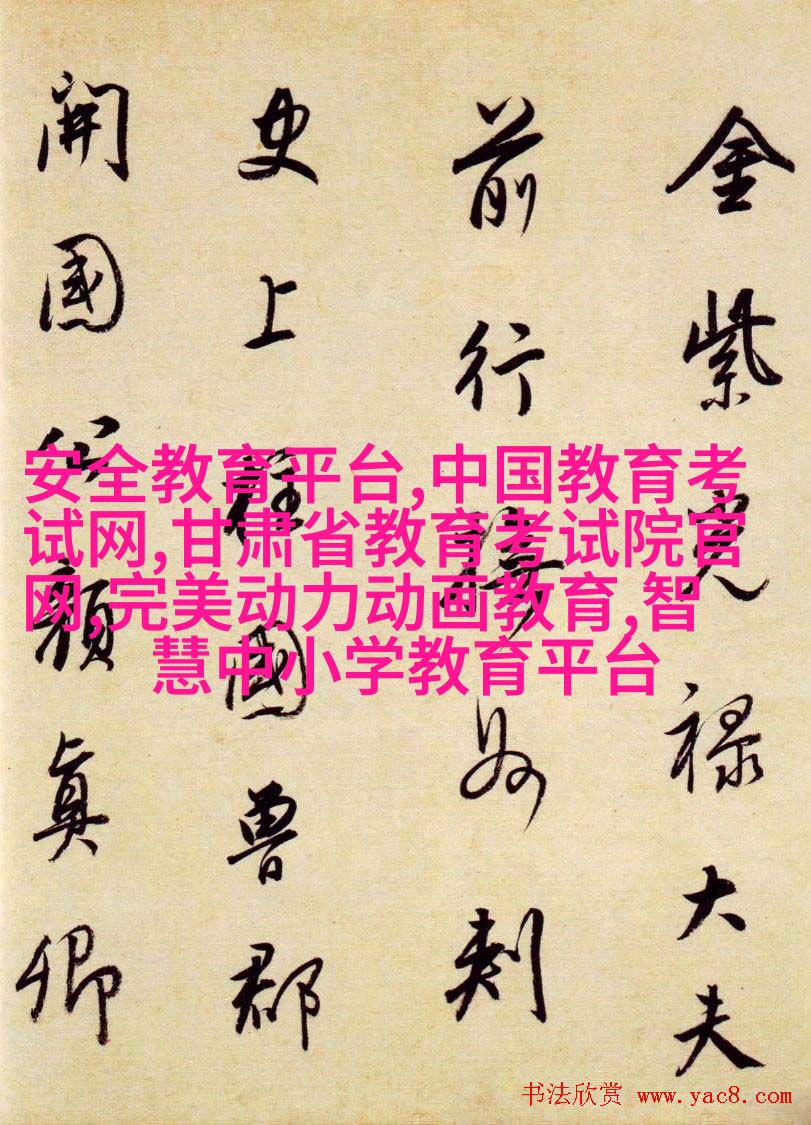 金紫光禄大夫
前行撫州刺
史上柱國魯郡
開國公顏真卿
安全教育平台,中国教育考
试网,甘肃省教育考试院官
网,完美动力动画教育,智
慧中小学教育平台
书法欣赏 www.yac8.com